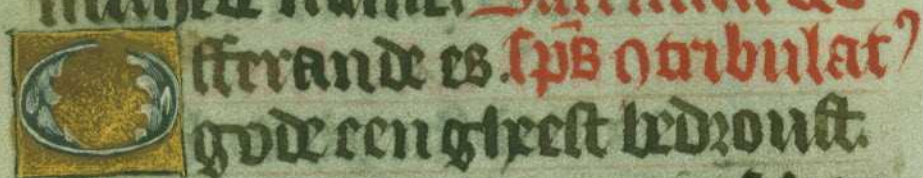 Offerande es. sp̄s ꝯtribulatꝰ
gode een gheest bedrouft.